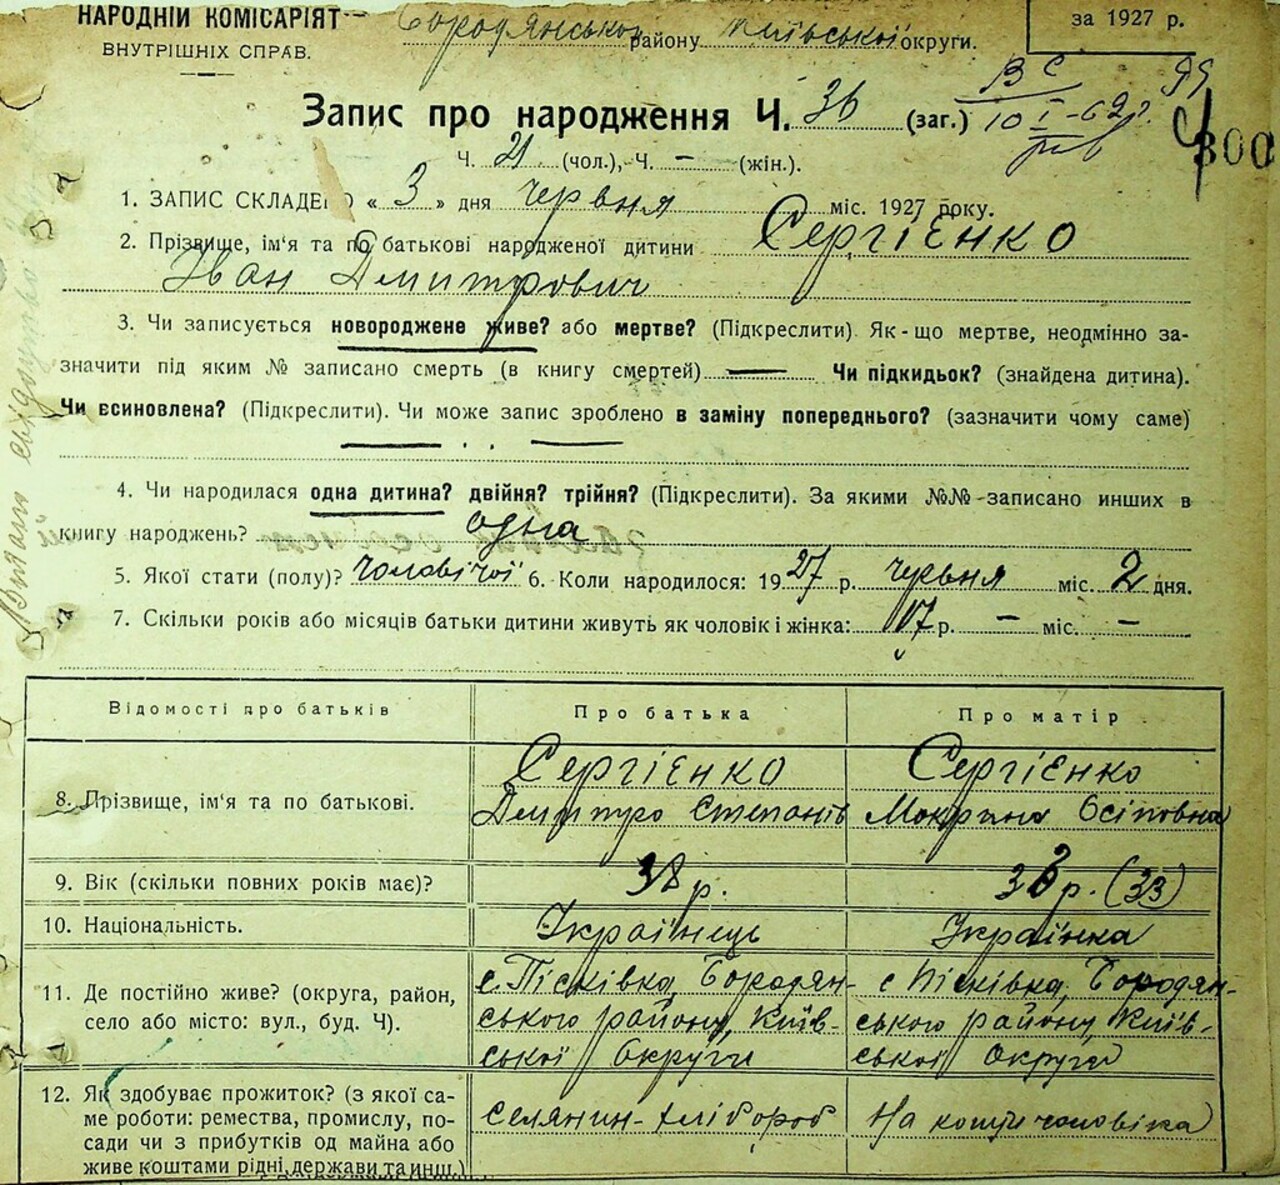 НАРОДНІЙ КОМІСАРІЯТ
ВНУТРІШНІХ СПРАВ.
Бородянського району Київської округи.
за 1927 р.
Запис про народження Ч. 36 (заг.)
ВС
10 I-62 г.
99
300
Ч. 21 (чол.), Ч. — (жін.).
1. ЗАПИС СКЛАДЕ О « 3 » дня червня міс. 1927 року.
2. Прізвище, ім'я та по батькові народженої дитини Сергієнко
Іван Дмитрович
3. Чи записується новороджене живе? або мертве? (Підкреслити). Як-що мертве, неодмінно за-
значити під яким № записано смерть (в книгу смертей) — Чи підкидьок? (знайдена дитина).
Чи всиновлена? (Підкреслити). Чи може запис зроблено в заміну попереднього? (зазначити чому саме)
4. Чи народилася одна дитина? двійня? трійня? (Підкреслити). За якими №№ записано инших в
книгу народжень? одна
5. Якої стати (полу)? чоловічої 6. Коли народилося: 1927 р. червня міс. 2 дня.
7. Скільки років або місяців батьки дитини живуть як чоловік і жінка: 17 р. — міс. —
Відомості про батьків Про батька Про матір
8. Прізвище, ім'я та по батькові. Сергієнко Дмитро Степанів Сергієнко Мокрина Осіповна
9. Вік (скільки повних років має)? 38 р. 33 р. (33)
10. Національність. Українець Українка
11. Де постійно живе? (округа, район, село або місто: вул., буд. Ч). с. Пісківка, Бородян-ського району, Київ-ської Округи с Пісківка, Бородян-ського району Київ-ської Округи
12. Як здобуває прожиток? (з якої са-ме роботи: ремества, промислу, по-сади чи з прибутків од майна або живе коштами рідні, держави та инш.) селянин-хлібороб На кошти чоловіка